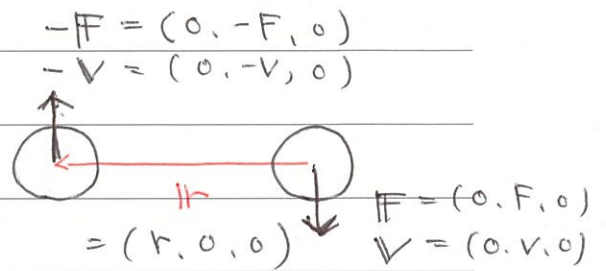 -𝔽 = (0, -F, 0)
-𝕍 = (0, -V, 0)
𝕣
= (r, 0, 0)
𝔽 = (0, F, 0)
𝕍 = (0, V, 0)